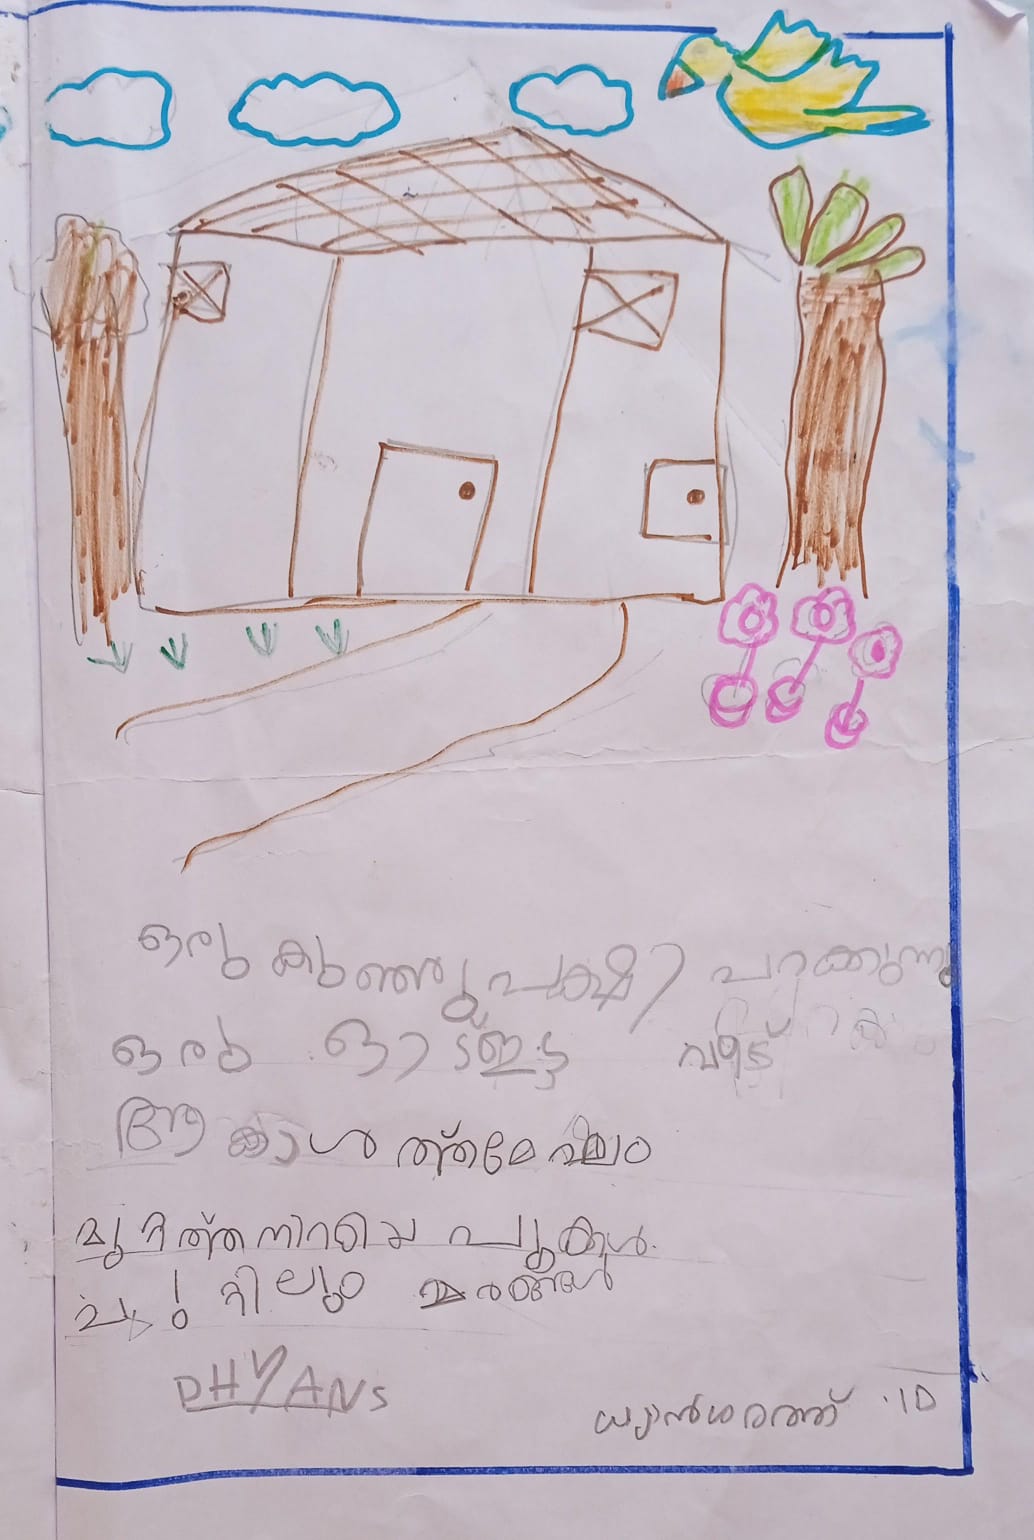 ഒരു കുഞ്ഞുപക്ഷി പറക്കുന്നു
ഒരു ഓട്ഇട്ട വീട്
ആകാശത്ത്മേഘം
മുറ്റത്ത്നിറയെ പൂക്കൾ.
ചുറ്റിലും മരങ്ങൾ
DHYANS
ധ്യാൻശരത്ത് .1D